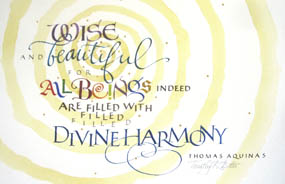 WISE
AND beautiful
FOR
ALL BEINGS INDEED
ARE FILLED WITH
FILLED
FILLED
DIVINE HARMONY
THOMAS AQUINAS